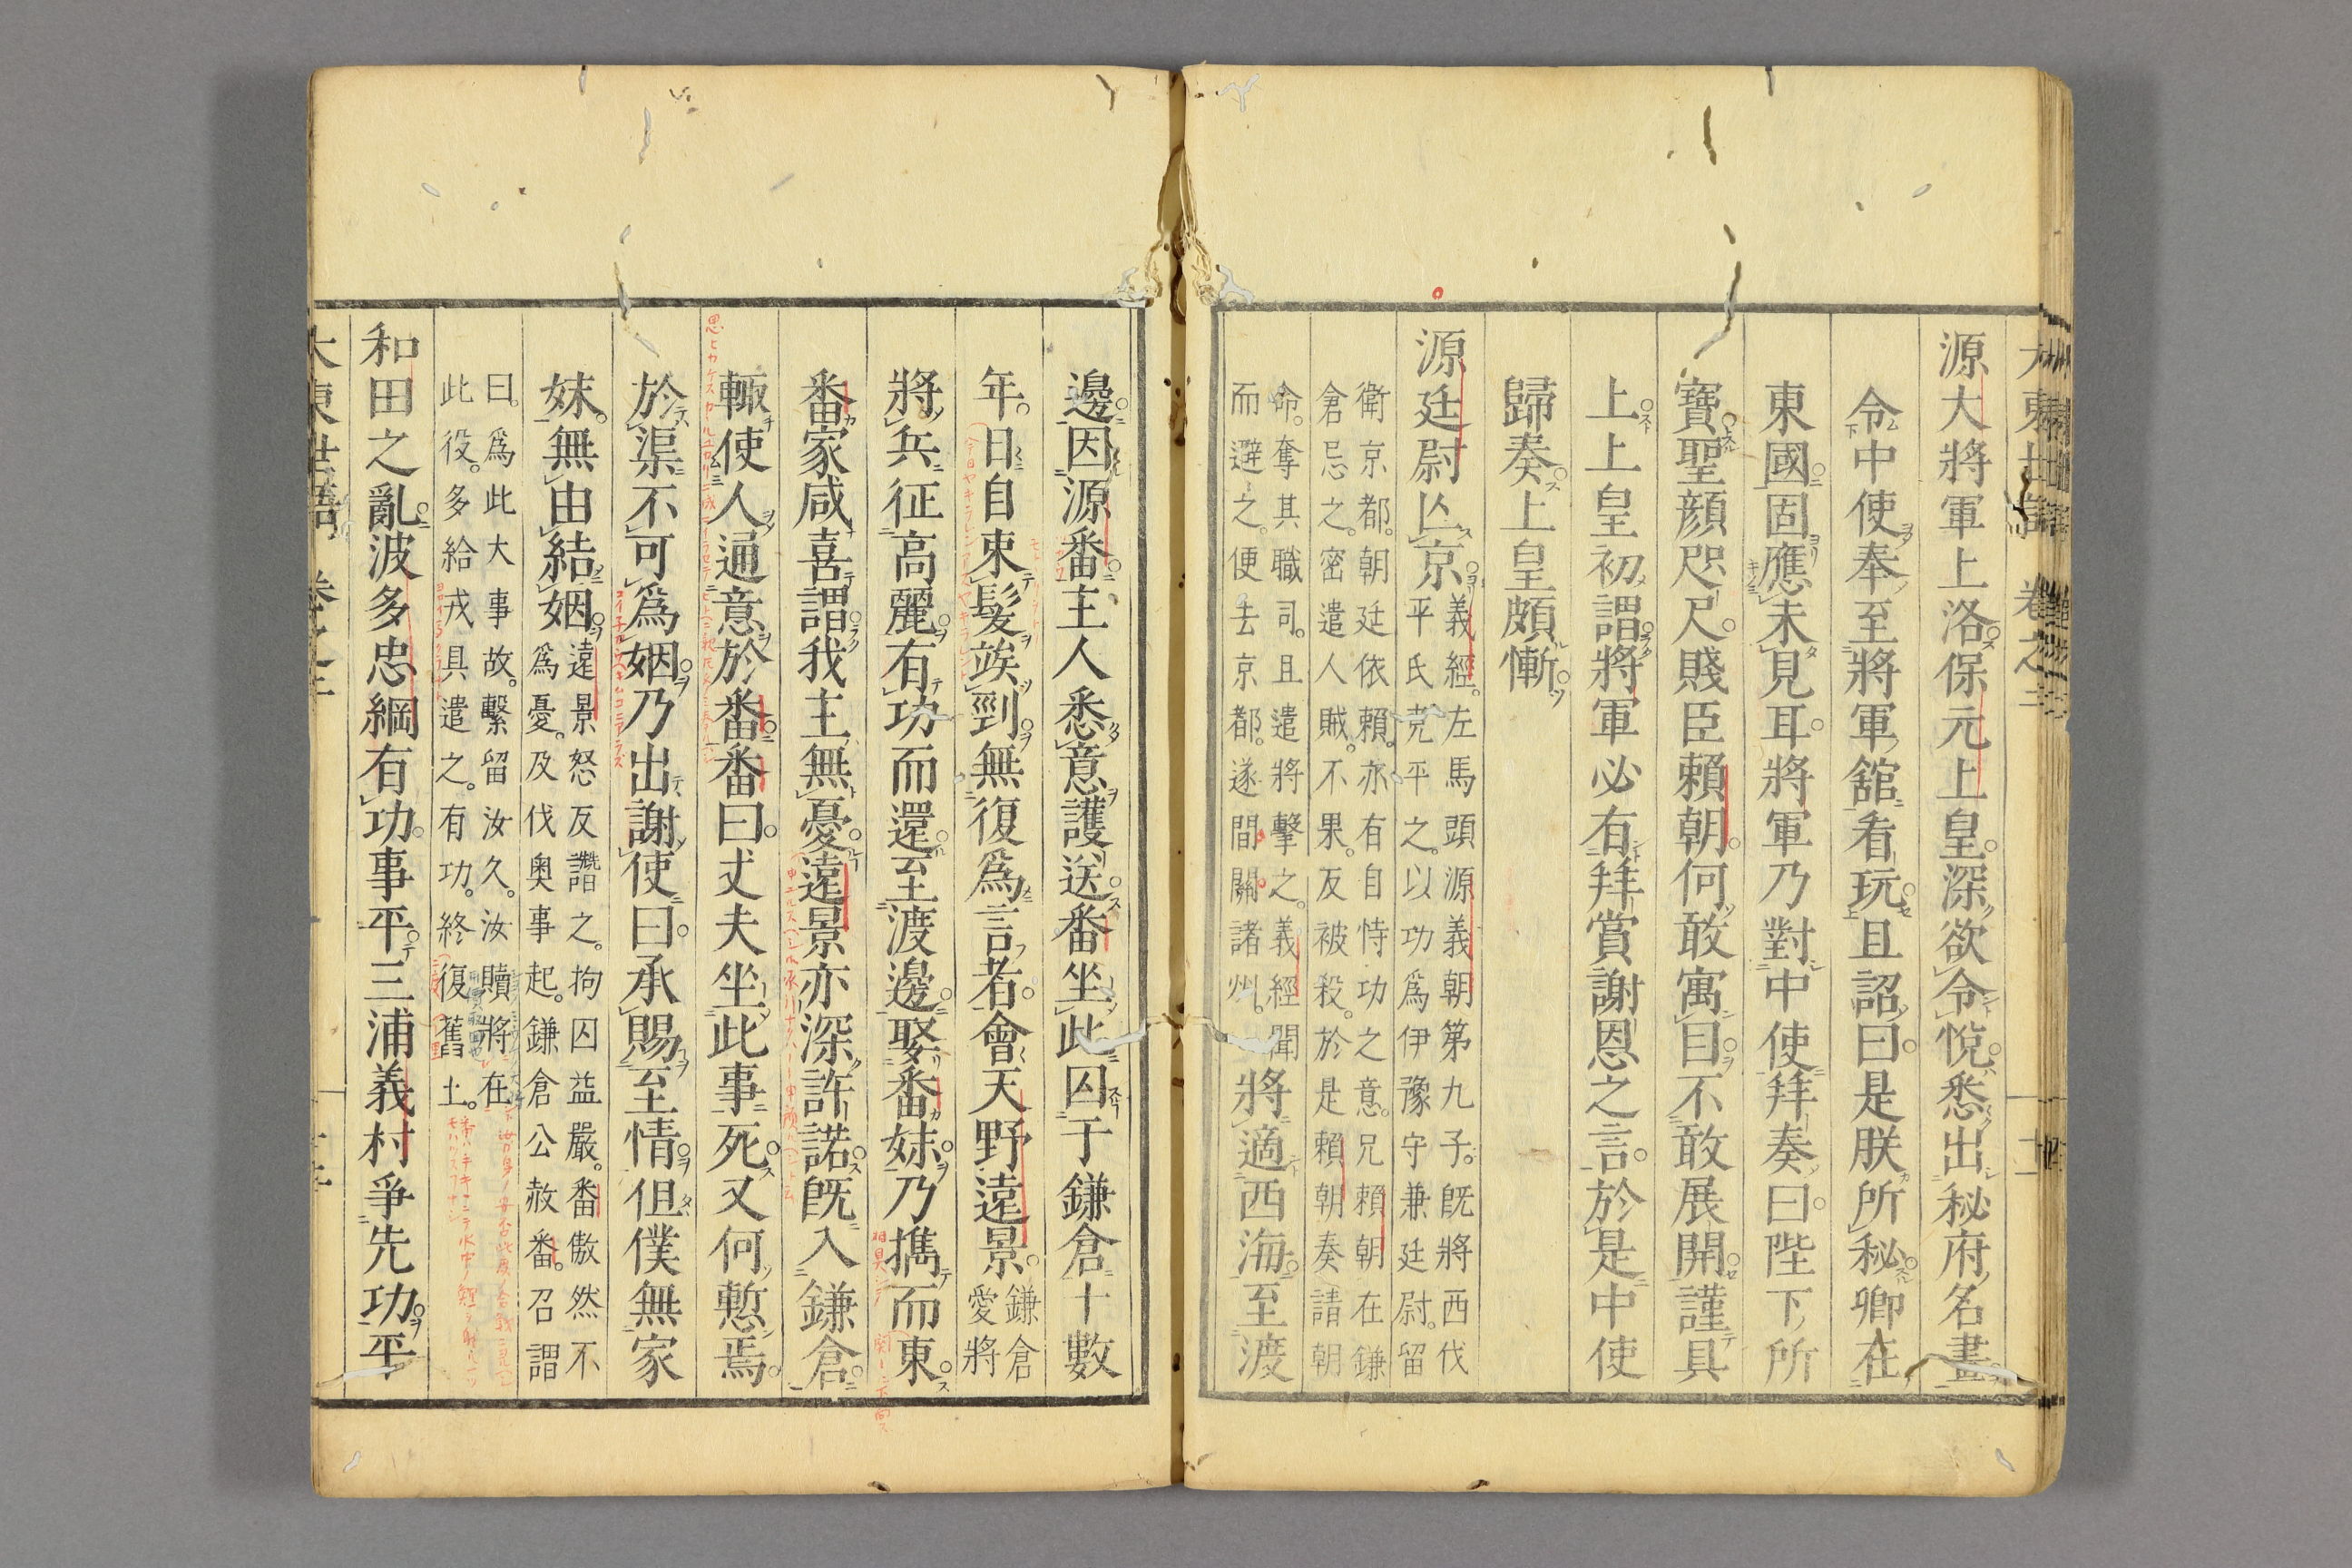 源大將軍上洛保元上皇深欲令悅悉出秘府名畫
令中使奉至將軍舘看玩且詔曰是朕所秘卿在
東國固應未見耳將軍乃對中使拜奏曰陛下所
寶聖顔咫尺賤臣賴朝何敢寓目不敢展開謹具
上上皇初謂將軍必有拜賞謝恩之言於是中使
歸奏上皇頗慚
源廷尉亾京
義經左馬頭源義朝第九子既將西伐
平氏克平之以功爲伊豫守兼廷尉留
衛京都朝廷依賴亦有自恃功之意兄賴朝在鎌
倉忌之密遣人賊不果反被殺於是賴朝奏請朝
命奪其職司且遣將擊之義經聞
而避之便去京都遂間關諸州
將適西海至渡
邊因源番主人悉意護送番坐此囚于鎌倉十數
年日自束髮竢剄無復爲言者會天野遠景
鎌倉
愛將
將兵征高麗有功而還至渡邊娶番妹乃攜而東
番家咸喜謂我主無憂遠景亦深許諾既入鎌倉
輙使人通意於番番曰丈夫坐此事死又何慙焉
於渠不可爲姻乃出謝使曰承賜至情但僕無家
妹無由結姻
遠景怒反譖之拘囚益嚴番傲然不
爲憂及伐奧事起鎌倉公赦番召謂
曰爲此大事故繫留汝久汝贖將在
此役多給戎具遣之有功終復舊土
和田之亂波多忠綱有功事平三浦義村爭先功平
大東世語 卷之三